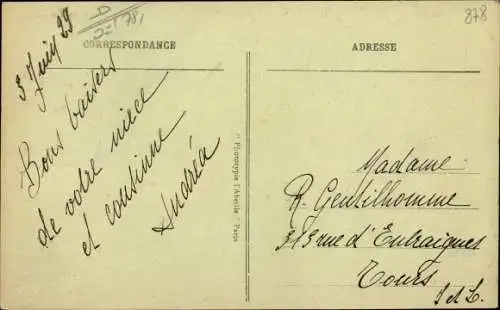 878
CORRESPONDANCE
ADRESSE
3 Juin 29
Bons baisers
de votre niece
et cousinne
Andréa
" Phototypie l'Abeille " Paris
Madame
R. Gentilhomme
313 rue d'Entraigues
Tours
I et L.